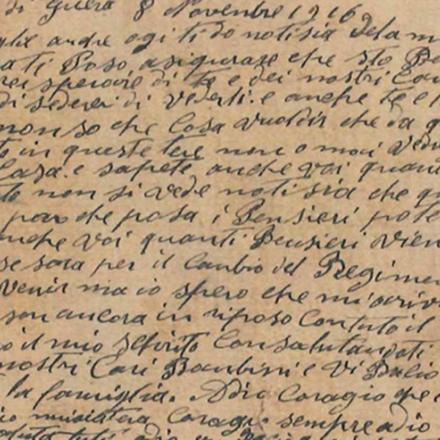 di guera 8 Novembre 1916
anche ogi ti do notisia dela m
ti Poso asigurare che sto Be
sperovie di te e dei nostri Car
di sederei di vederti e anche te e
non so che Cosa vuoldir che da q
in queste tere non o mai vedu
Casa e sapete anche voi quan
non si vede notisia che q
pavo che posa i Pensieri pote
anche voi quanti Pensieri vien
se sara per il Canbio del Regimen
venir ma io spero che mi scriv
son ancora in riposo Con tuto il
il mio scrito Con salutandoti
nostri Cari Bambini e Vi Bacio
la famiglia. Adio Coragio che
Coragi sempre adio